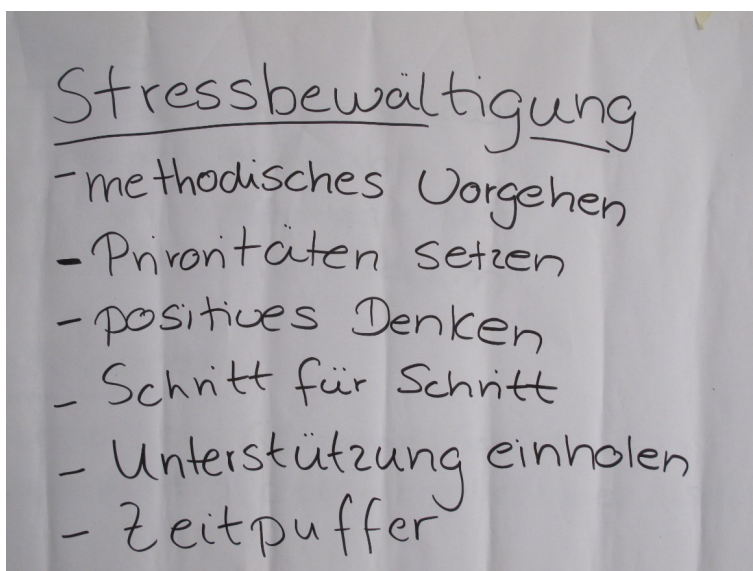 Stressbewältigung
- methodisches Vorgehen
- Privoritäten setzen
- positives Denken
- Schritt für Schritt
- Unterstützung einholen
- Zeitpuffer